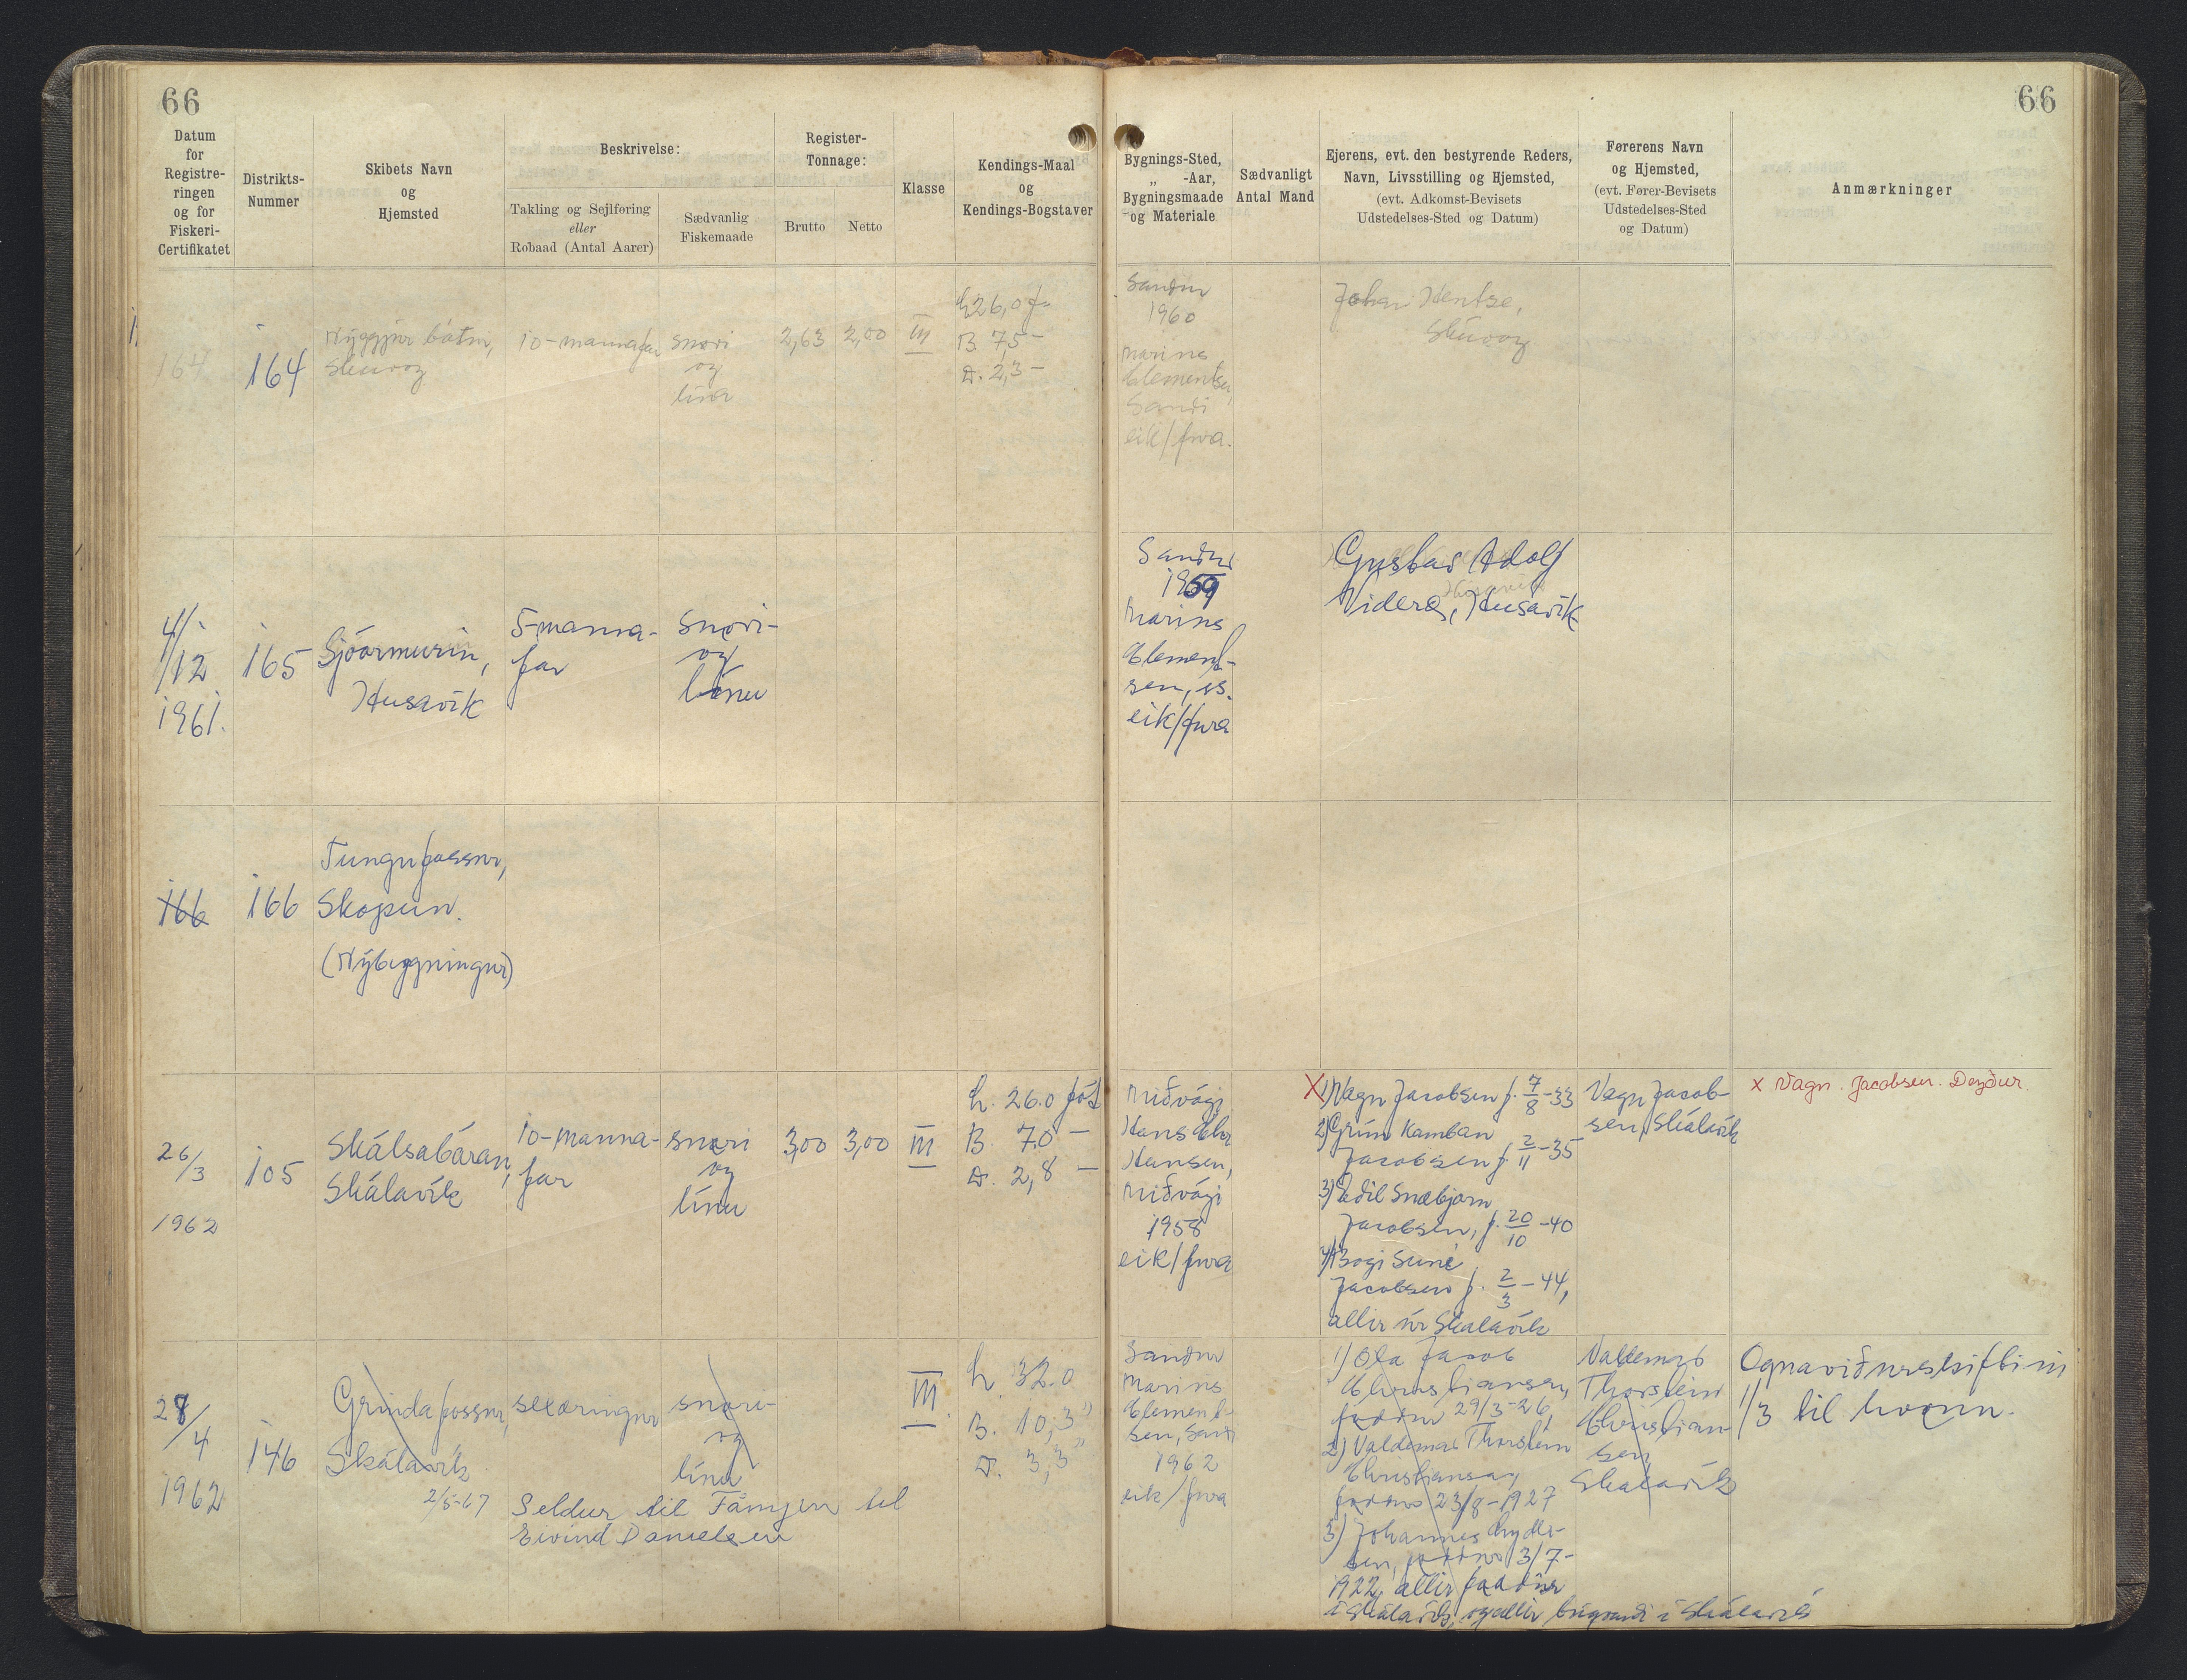 66
66
Datum
for
Registre-
ringen
og for
Fiskeri-
Certifikatet
Distrikts-
Nummer
Skibets Navn
og
Hjemsted
Beskrivelse:
Takling og Sejlføring
eller
Robaad (Antal Aarer)
Sædvanlig
Fiskemaade
Register-
Tonnage:
Brutto
Netto
Klasse
Kendings-Maal
og
Kendings-Bogstaver
Bygnings-Sted,
„ -Aar,
Bygningsmaade
og Materiale
Sædvanligt
Antal Mand
Ejerens, evt. den bestyrende Reders,
Navn, Livsstilling og Hjemsted,
(evt. Adkomst-Bevisets
Udstedelses-Sted og Datum)
Førerens Navn
og Hjemsted,
(evt. Fører-Bevisets
Udstedelses-Sted
og Datum)
Anmærkninger
164
164
Nýggjur bátur,
Skúvoy
10-mannafar
snøri
og
línu
2,63
2,00
III
L 26,0 f.
B. 7,5 -
D. 2,3 -
Sandur
1960
Marius
Clementsen,
Sandi
eik/fura.
Johan Hentze,
Skúvoy
4/
12
1961.
165
Sjóarmurin,
Húsavík
5-manna-
far
snøri-
og
línu
Sandur
Marius
Clement-
sen, ss.
eik/fura
Gustav Adolf
Viderø, Húsavík
166
166
Tungufossur,
Skopun.
(Nýbygningur)
26/3
1962
105
Skálsabáran,
Skálavík
10-manna-
far
snøri
og
línu
3,00
3,00
III
L. 26.0 fót
B. 7.0 -
D. 2,8 -
Miðvági
Hans Chr
Hansen,
Miðvági
1958
eik/fura
X 1) Vagn Jacobsen f. 7/8-33
2) Grím Kamban
Jacobsen f. 2/11-35
3) Eðil Snæbjørn
Jacobsen, f. 20/10-40
4) Bogi Suni
Jacobsen f. 2/3-44,
allir úr Skálavík
Vagn Jacob-
sen, Skálavík
x Vagn. Jacobsen. Deyður.
28/
4
1962
146
Grindafossur,
Skálavík
seksæringur
snøri-
og
línu
III
L. 32.0
B. 10,3"
D. 3,3"
2/5-67 Seldur til Fámjin til
Eivind Danielsen
Sandur
Marius
Clement-
sen, Sandi
1962
eik/fura
1) Óla Jacob
Christiansen,
føddur 29/3-26,
2) Valdemar Thorstein
Christiansen,
føddur 23/8-1927
3) Johannes
sen, føddur 3/7-
1922, allir føddir
í Skálavík, og allir búgvandi í Skálavík
Valdemar
Thorstein
Christian
sen
Skálavík
Ognaviðurskiftini
1/3 til hvønn.